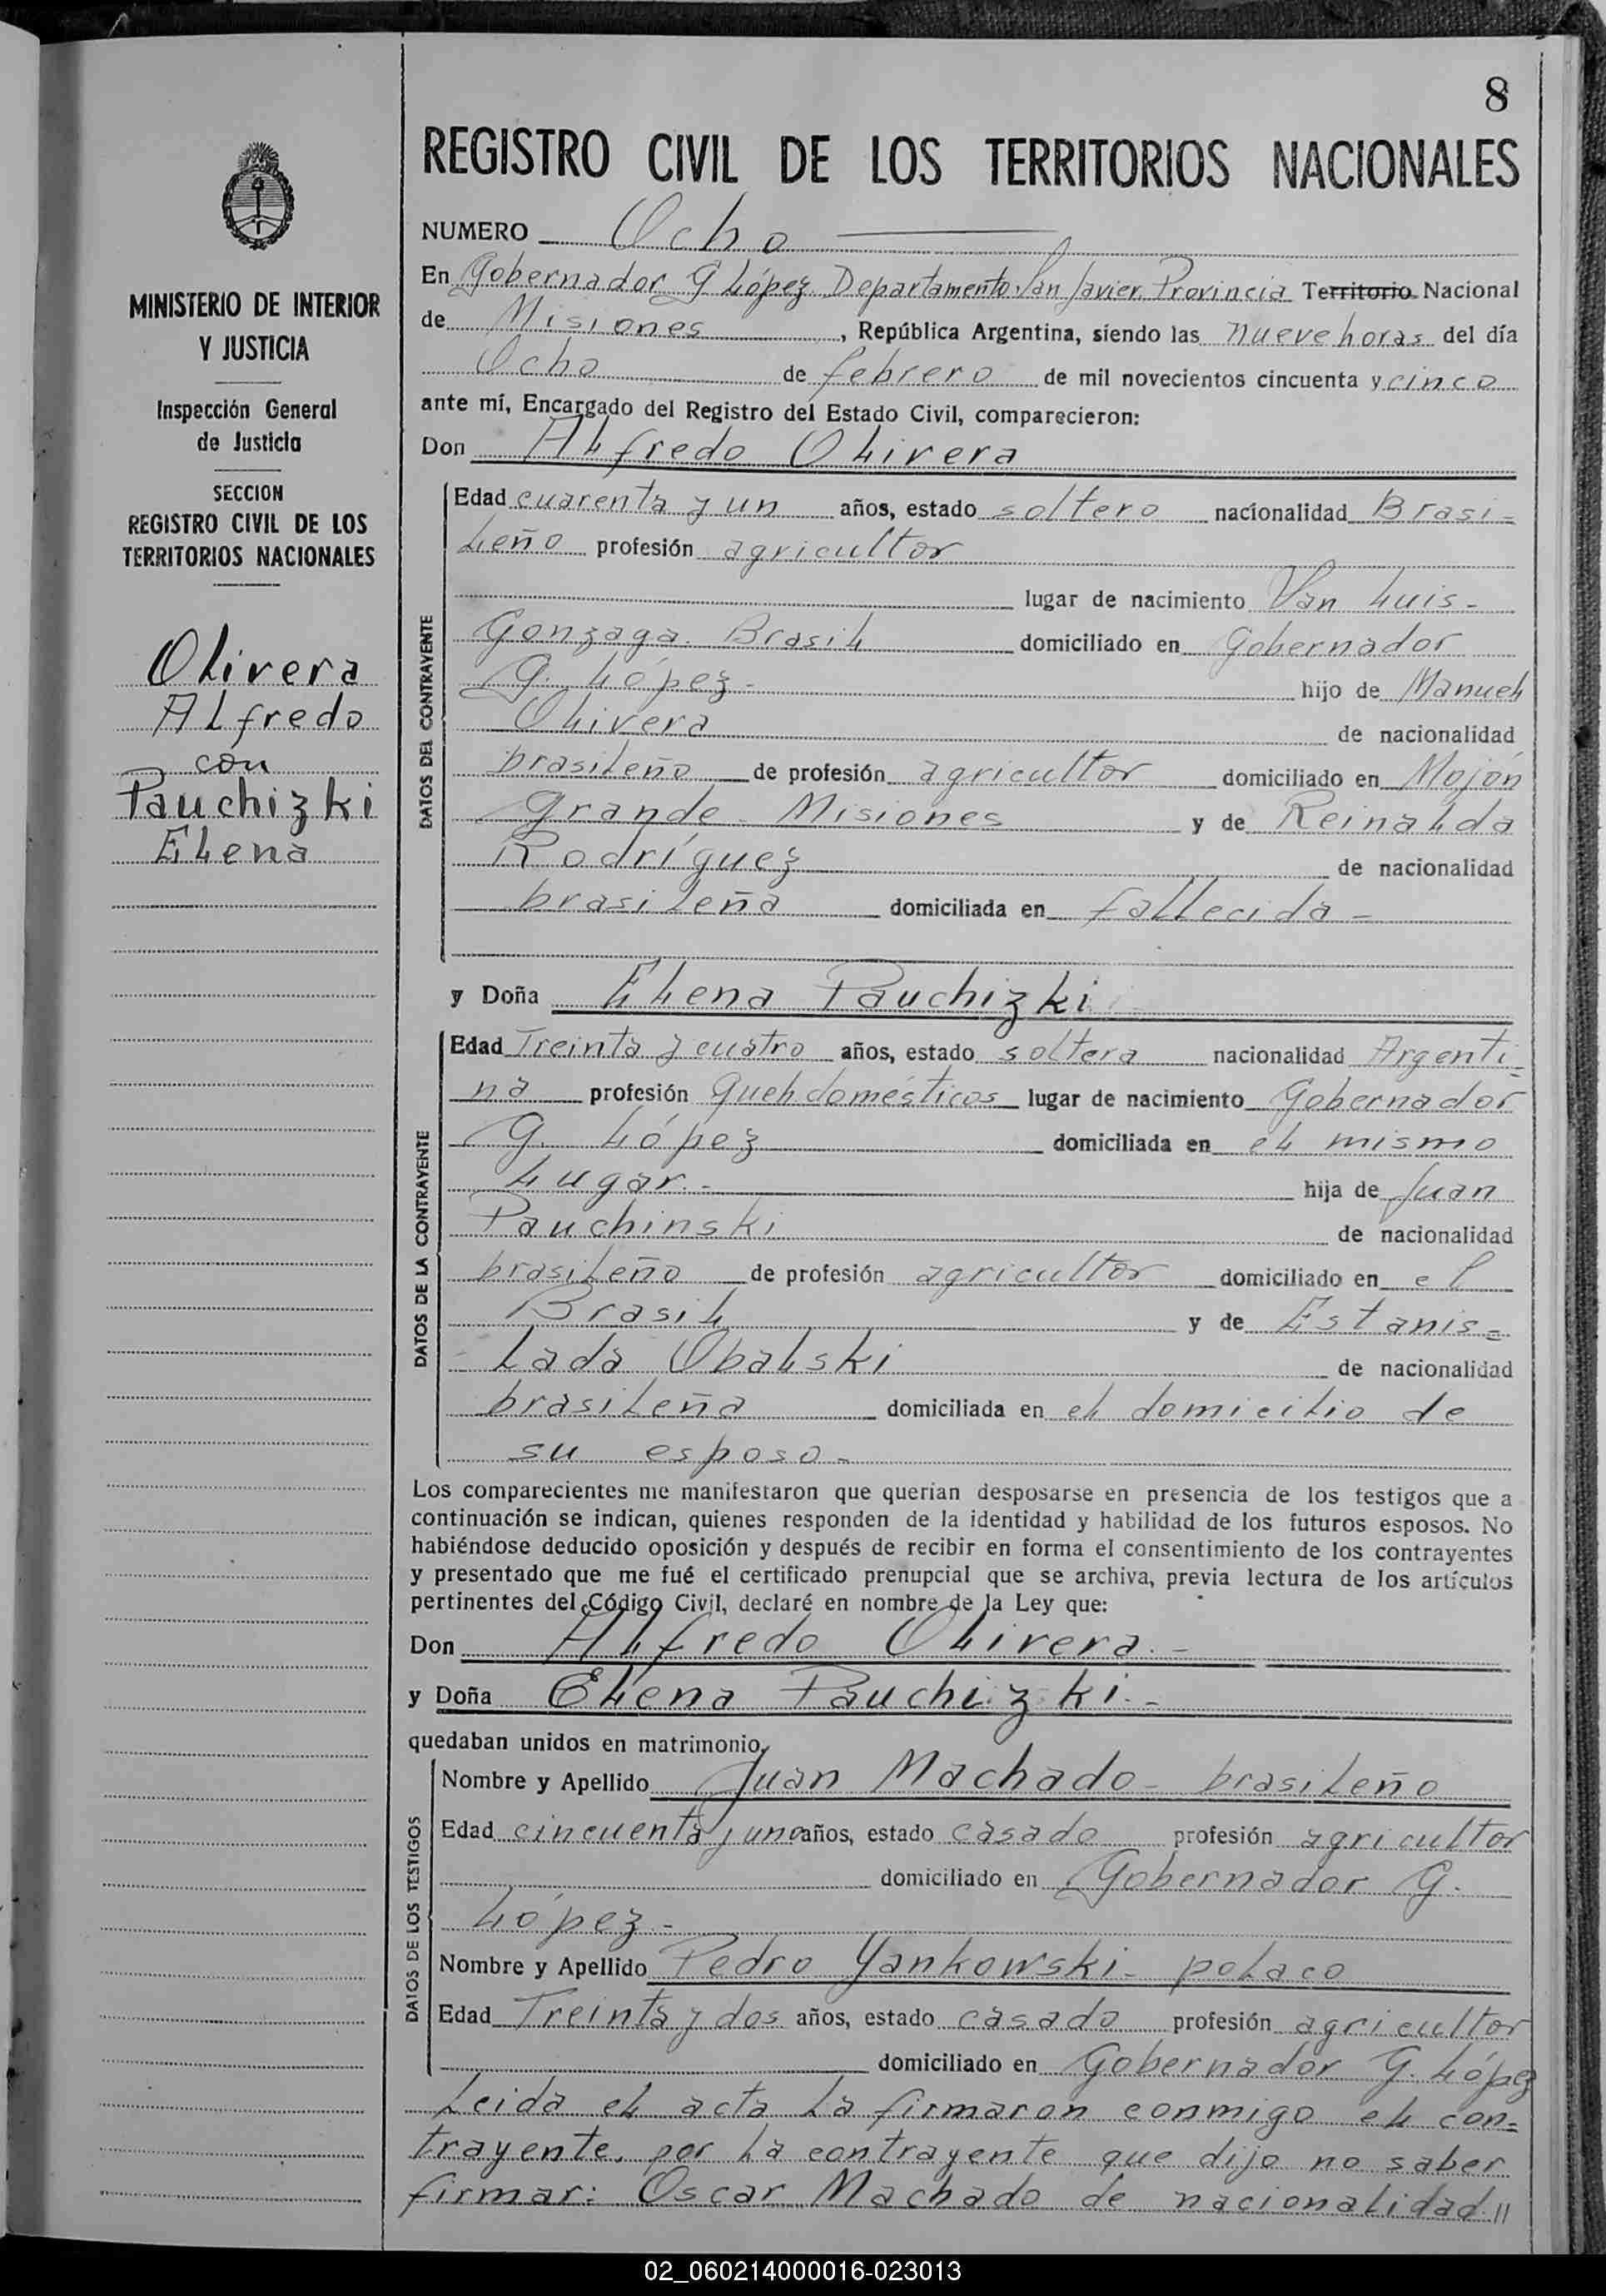 8
REGISTRO CIVIL DE LOS TERRITORIOS NACIONALES
MINISTERIO DE INTERIOR
Y JUSTICIA
Inspección General
de Justicia
SECCION
REGISTRO CIVIL DE LOS
TERRITORIOS NACIONALES
Olivera
Alfredo
con
Pauchizki
Elena
NUMERO Ocho
En Gobernador G López Departamento San Javier Provincia Territorio Nacional
de Misiones, República Argentina, siendo las nueve horas del día
Ocho de febrero de mil novecientos cincuenta y cinco
ante mí, Encargado del Registro del Estado Civil, comparecieron:
Don Alfredo Olivera
DATOS DEL CONTRAYENTE
Edad cuarenta y un años, estado soltero nacionalidad Brasi-
leño profesión agricultor
lugar de nacimiento San Luis-
Gonzaga. Brasil domiciliado en Gobernador
G. López- hijo de Manuel
Olivera de nacionalidad
brasileño de profesión agricultor domiciliado en Mojón
grande - Misiones y de Reinalda
Rodríguez de nacionalidad
brasileña domiciliada en fallecida-
y Doña Elena Pauchizki
DATOS DE LA CONTRAYENTE
Edad Treinta y cuatro años, estado soltera nacionalidad Argenti=
na profesión Queh domésticos lugar de nacimiento Gobernador
G. López domiciliada en el mismo
lugar.- hija de Juan
Pauchinski de nacionalidad
brasileño de profesión agricultor domiciliado en el
Brasil y de Estanis=
lada Obalski de nacionalidad
brasileña domiciliada en el domicilio de
su esposo-
Los comparecientes me manifestaron que querian desposarse en presencia de los testigos que a
continuación se indican, quienes responden de la identidad y habilidad de los futuros esposos. No
habiéndose deducido oposición y después de recibir en forma el consentimiento de los contrayentes
y presentado que me fué el certificado prenupcial que se archiva, previa lectura de los artículos
pertinentes del Código Civil, declaré en nombre de la Ley que:
Don Alfredo Olivera.-
y Doña Elena Pauchizki.-
quedaban unidos en matrimonio.
DATOS DE LOS TESTIGOS
Nombre y Apellido Juan Machado- brasileño
Edad cincuenta y uno años, estado casado profesión agricultor
domiciliado en Gobernador G.
López-
Nombre y Apellido Pedro Yankowski- polaco
Edad Treinta y dos años, estado casado profesión agricultor
domiciliado en Gobernador G. López
Leida el acta la firmaron conmigo el con=
trayente, por la contrayente que dijo no saber
firmar: Oscar Machado de nacionalidad "
02_060214000016-023013